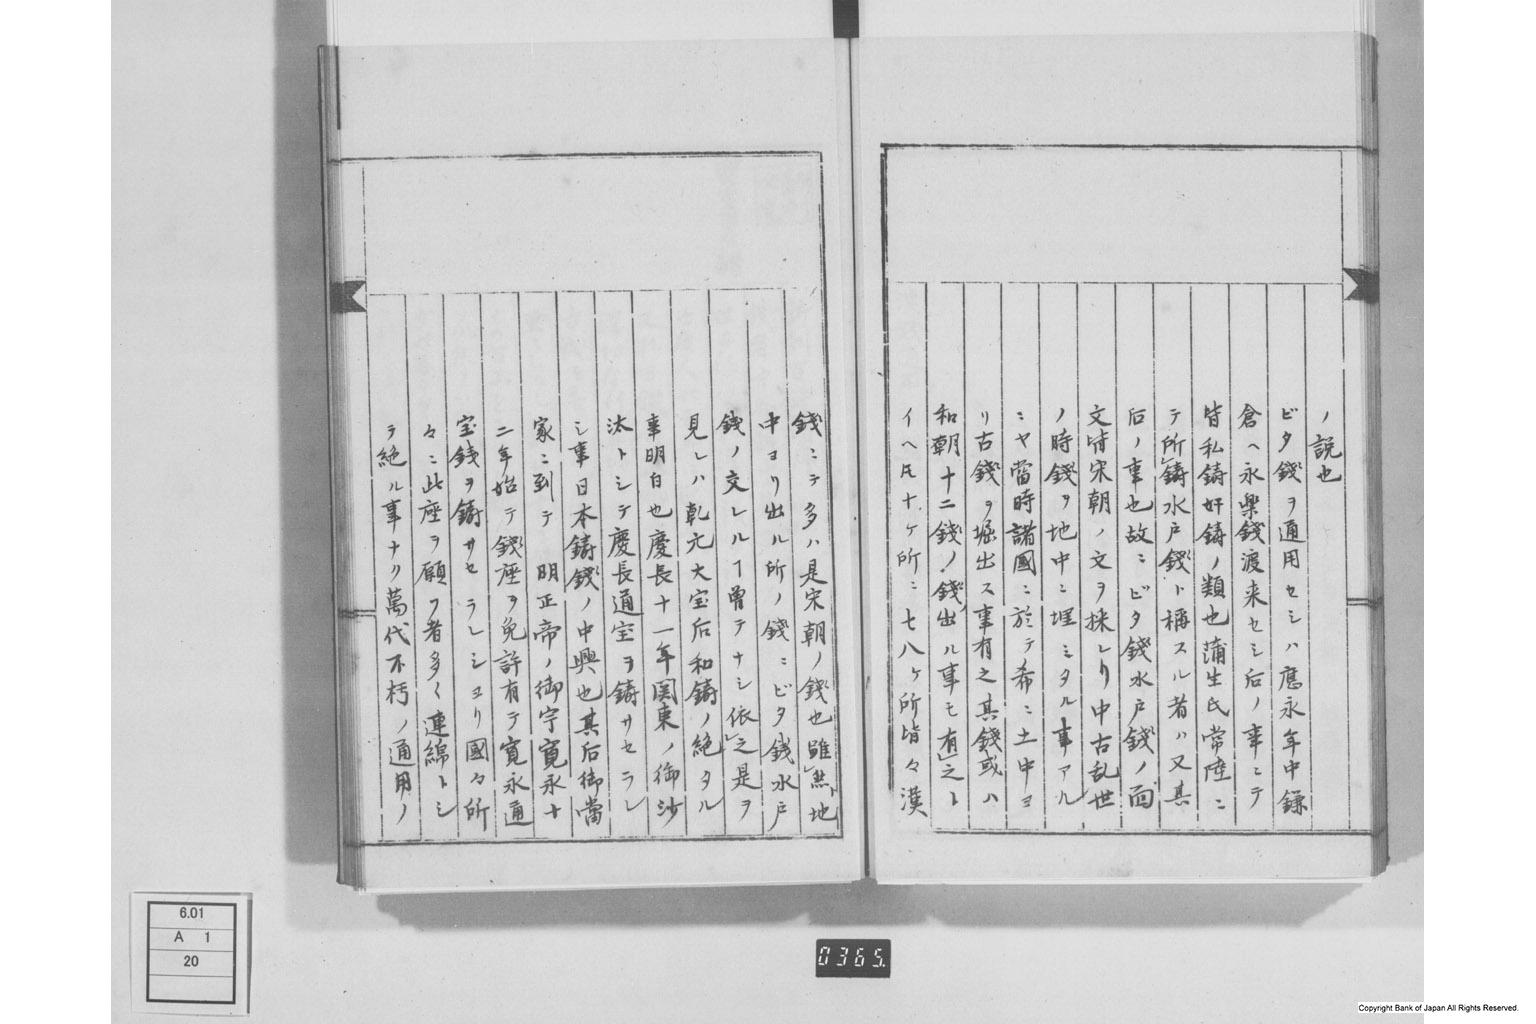 ノ説也
ビタ錢ヲ通用セシハ應永年中鎌
倉ヘ永樂錢渡来セシ后ノ事ニテ
皆私鋳奸鋳ノ類也蒲生氏常陸ニ
テ所鋳水戸錢ト稱スル者ハ又其
后ノ事也故ニビタ錢水戸錢ノ面
文皆宋朝ノ文ヲ採レリ中古乱世
ノ時錢ヲ地中ニ埋ミタル事アル
ニヤ當時諸國ニ於テ希ニ土中ヨ
リ古錢ヲ堀出ス事有之其錢或ハ
和朝十二錢ノ錢出ル事モ有之ト
イヘ𪜈十ケ所ニ七八ケ所皆々漢
錢ニテ多ハ是宋朝ノ錢也雖然地
中ヨリ出ル所ノ錢ニビタ錢水戸
錢ノ交レルヿ曽テナシ依之是ヲ
見レハ乾元大宝后和鋳ノ絶タル
事明白也慶長十一年関東ノ御沙
汰トシテ慶長通宝ヲ鋳サセラレ
シ事日本鋳錢ノ中興也其后御當
家ニ到テ 明正帝ノ御宇寛永十
二年始テ錢座ヲ免許有テ寛永通
宝錢ヲ鋳サセラレシヨリ國々所
々ニ此座ヲ願フ者多く連綿トシ
テ絶ル事ナリ萬代不朽ノ通用ノ
6.01
A 1
20
0365.
Copyright Bank of Japan All Rights Reserved.